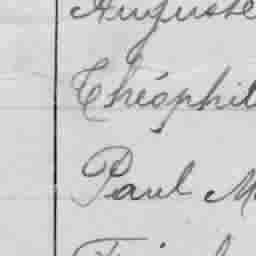 Auguste
Théophil
Paul M